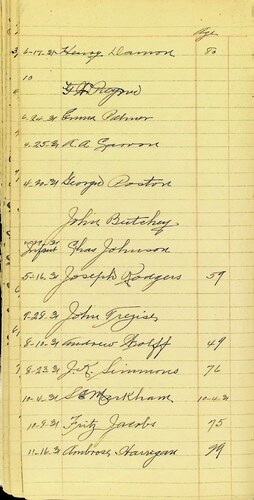 Age
4-17-31 Henry Damon 80
10
4-24-31 Emma Palmer
4-25-31 R A
4-30-31 Georgie Poston
John Butchey
Infant Chas Johnson
5-16-31 Joseph Rodgers 59
7-28-31 John
8-10-31 Andrew Wolff 49
8-23-31 J. K. Simmons 76
10-4-31 Markham 10-4-31
10-8-31 Fritz Jacobs 75
11-16-31 Ambrose Harrigan 79